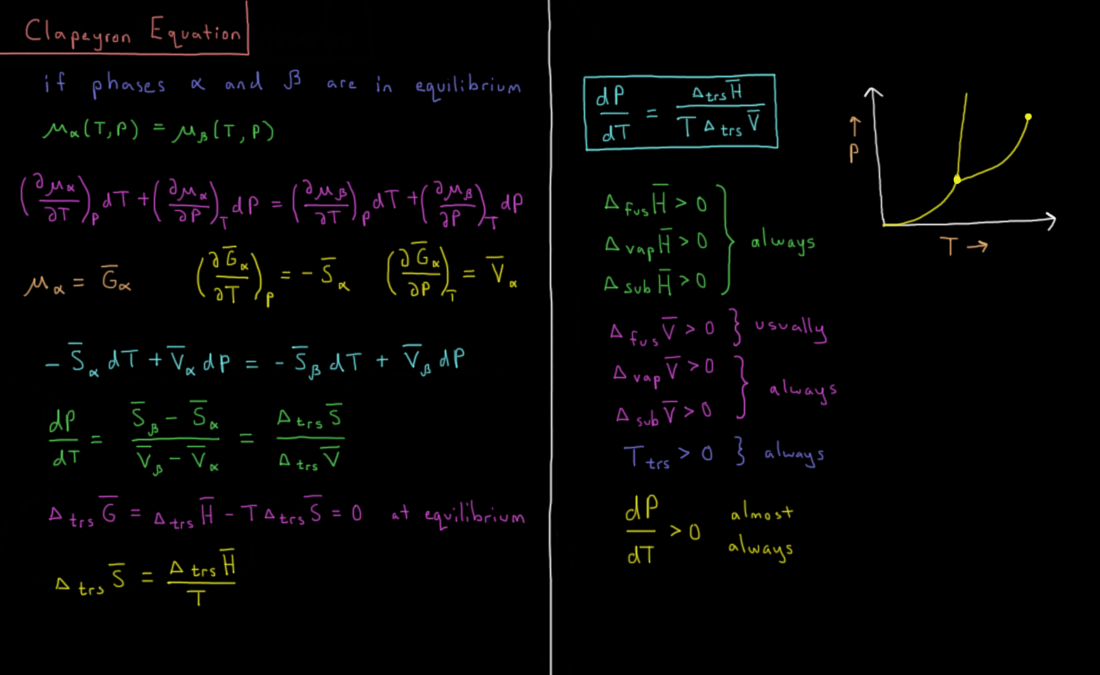 Clapeyron Equation
if phases α and β are in equilibrium
μ_α(T,P) = μ_β(T,P)
(∂μ_α/∂T)_P dT + (∂μ_α/∂P)_T dP = (∂μ_β/∂T)_P dT + (∂μ_β/∂P)_T dP
μ_α = G̅_α (∂G̅_α/∂T)_P = -S̅_α (∂G̅_α/∂P)_T = V̅_α
-S̅_α dT + V̅_α dP = -S̅_β dT + V̅_β dP
dP/dT = (S̅_β - S̅_α)/(V̅_β - V̅_α) = Δ_trs S̅/Δ_trs V̅
Δ_trs G̅ = Δ_trs H̅ - TΔ_trs S̅ = 0 at equilibrium
Δ_trs S̅ = Δ_trs H̅/T
dP/dT = Δ_trs H̅/(T Δ_trs V̅)
Δ_fus H̅ > 0
Δ_vap H̅ > 0 } always
Δ_sub H̅ > 0
Δ_fus V̅ > 0 } usually
Δ_vap V̅ > 0
} always
Δ_sub V̅ > 0
T_trs > 0 } always
dP/dT > 0 almost
always
↑
P
T →